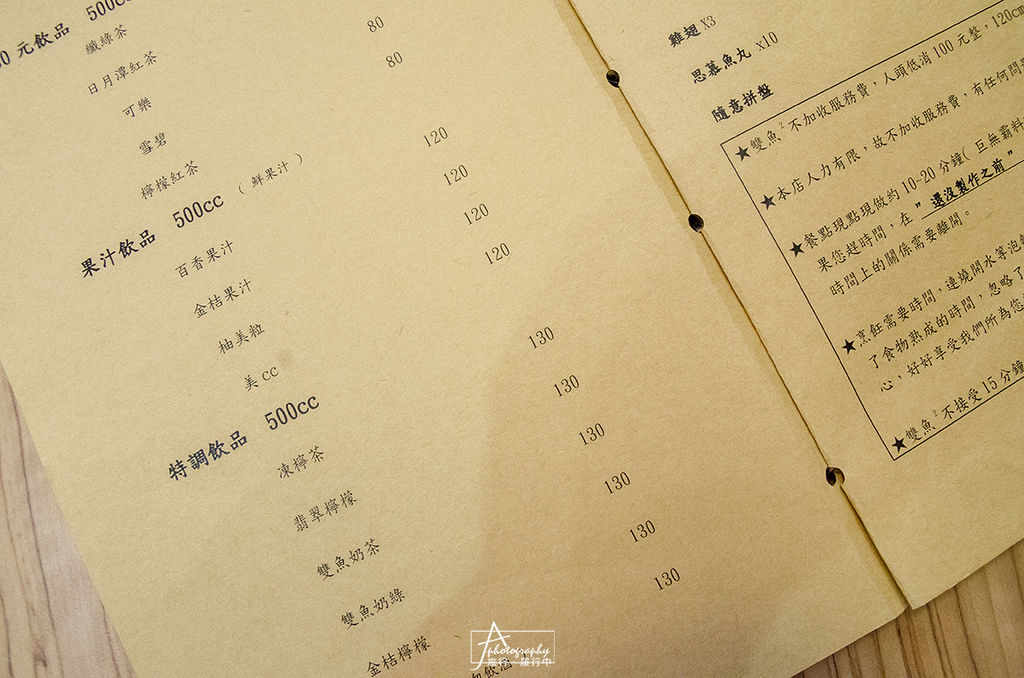 0 元飲品 500cc
纖綠茶
日月潭紅茶
可樂
雪碧 80
檸檬紅茶 80
果汁飲品 500cc ( 鮮果汁 )
百香果汁 120
金桔果汁 120
柚美粒 120
美 cc 120
特調飲品 500cc
凍檸茶 130
翡翠檸檬 130
雙魚奶茶 130
雙魚奶綠 130
金桔檸檬 130
130
雞翅 X3
思慕魚丸 x10
隨意拼盤
★雙魚² 不加收服務費，人頭低消 100 元整，120cm
★本店人力有限，故不加收服務費，有任何問
★餐點現點現做約 10-20 分鐘( 巨無霸料
果您趕時間，在 " 還沒製作之前 "
時間上的關係需要離開。
★烹飪需要時間，連燒開水等泡
了食物熟成的時間，忽略了
心，好好享受我們所為您
★雙魚² 不接受 15 分鐘
photography
旅行·履行中